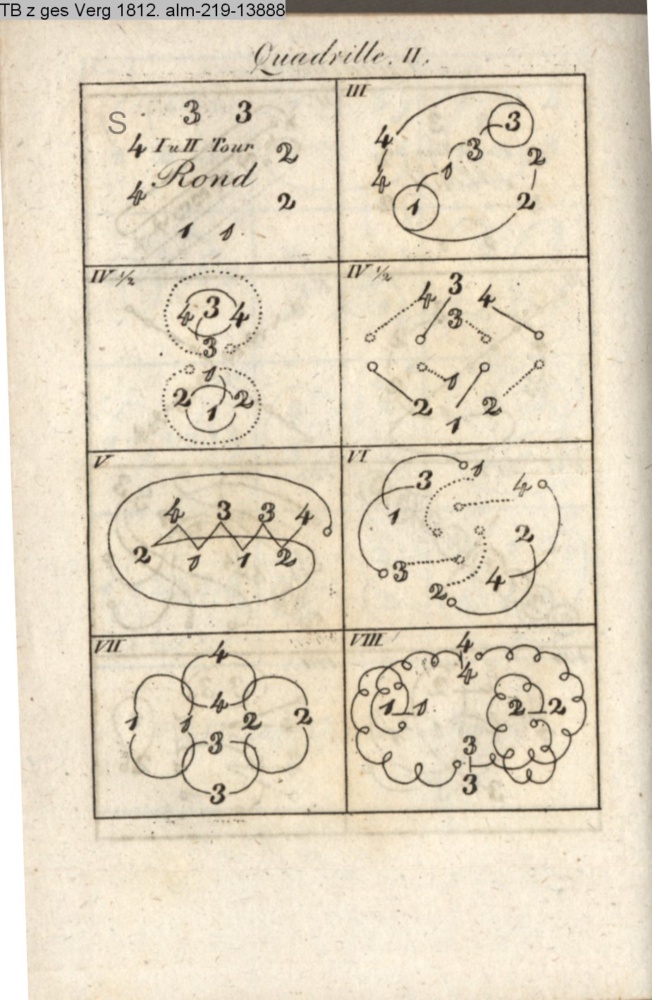 TB z ges Verg 1812. alm-219-13888
Quadrille. II.
S 3 3
4 I u II Tour 2
Rond
4 2
1 1
III
3
4 3 2
4 1
1 2
IV 1/2
4 3 4
3
1
2 1 2
IV 1/2
4 3 4
3
1
2 1 2
V
4 3 3 4
2 1 1 2
VI
1
3 4
1 2
3 4
2
VII
4
4
1 1 2 2
3
3
VIII
4
4
1 1 2 2
3
3